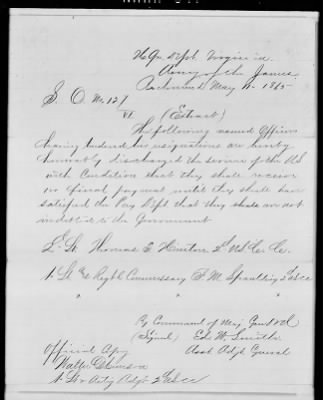 Hd Qrs Dept Virginia
Army of the James
Richmond May 11. 1865
S. O. No. 127
VI (Extract)
The following named Officers
having tendered their resignations are hereby
honorably discharged the service of the US
with Condition that they shall receive
no final payment until they shall have
satisfied the Pay Dept that they shall are not
indebted to the Government
2d Lt. Thomas E
1. Lt & Regtl Commissary F. M. Spaulding 2d USCC
" "
By Command of Maj Genl Ord
(Signed) Ed. W. Smith
Asst Adjt General
Official Copy
Walter
1. Lt & Actg Adjt 2d USCC